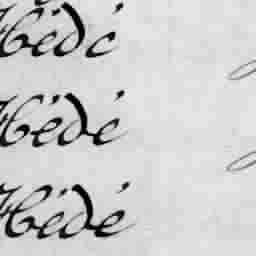 Hédé
Hédé
Hédé